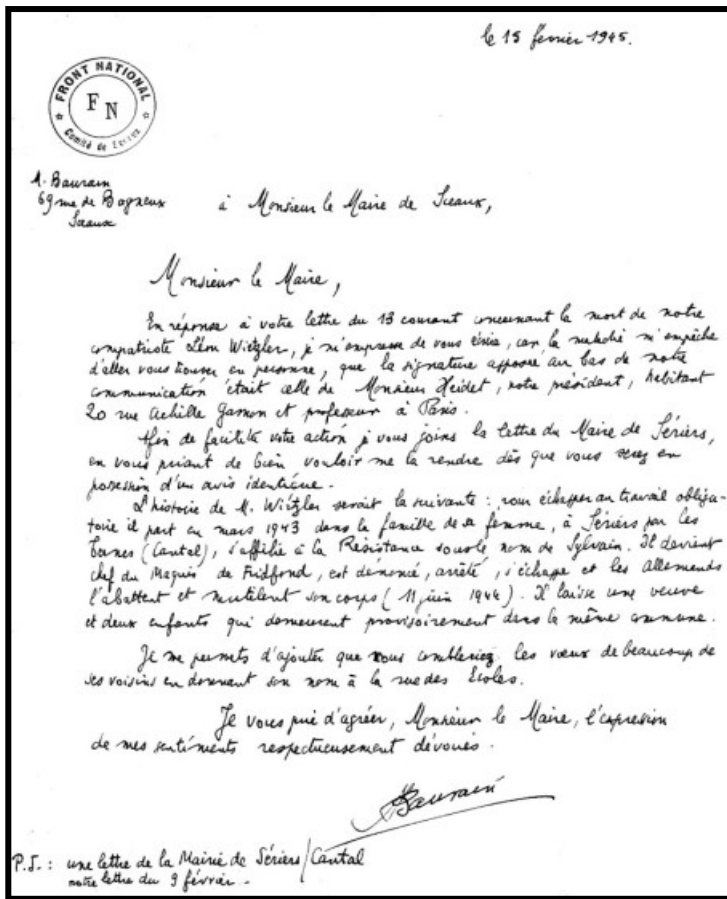 le 15 février 1945.
FRONT NATIONAL
FN
Comité de Sceaux
A. Baurain
69 rue de Bagneux
Sceaux
à Monsieur le Maire de Sceaux,
Monsieur le Maire,
En réponse à votre lettre du 13 courant concernant la mort de notre
compatriote Léon Wiétzler, je m'empresse de vous écrire, car la maladie m'empêche
d'aller vous trouver en personne, que la signature apposée au bas de notre
communication était celle de Monsieur Heidet, notre président, habitant
20 rue Achille Garnon et professeur à Paris.
Afin de faciliter votre action je vous joins la lettre du Maire de Sériers,
en vous priant de bien vouloir me la rendre dès que vous serez en
possession d'un avis identique.
L'histoire de M. Wiétzler serait la suivante : pour échapper au travail obliga-
toire il part en mars 1943 dans la famille de sa femme, à Sériers par les
Ternes (Cantal), s'affilie à la Résistance sous le nom de Sylvain. Il devient
chef du Maquis de Fridfond, est dénoncé, arrêté, s'échappe et les Allemands
l'abattent et mutilent son corps (11 juin 1944). Il laisse une veuve
et deux enfants qui demeurent provisoirement dans la même commune.
Je me permets d'ajouter que vous combleriez les vœux de beaucoup de
ses voisins en donnant son nom à la rue des Ecoles.
Je vous prie d'agréer, Monsieur le Maire, l'expression
de mes sentiments respectueusement dévoués.
ABaurain
P.J. : une lettre de la Mairie de Sériers/Cantal
notre lettre du 9 février.